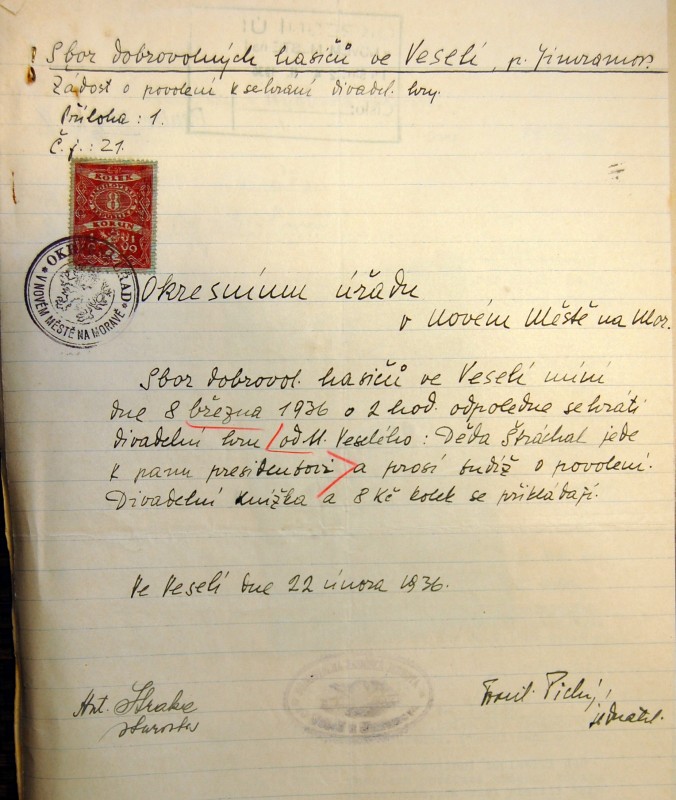 Sbor dobrovolných hasičů ve Veselí, p. Jimramov.
Žádost o povolení k sehrání divadel. hry.
Příloha: 1.
Č. j.: 21.
KOLEK
8
KORUN
OKRESNÍ ÚŘAD
V NOVÉM MĚSTĚ NA MORAVĚ
Okresnímu úřadu
v Novém Městě na Mor.
Sbor dobrovol. hasičů ve Veselí míní
dne 8 března 1936 o 2 hod. odpoledne sehráti
divadelní hru od M. Veselého: Děda Štráchal jede
k panu presidentovi a prosí tudíž o povolení.
Divadelní knížka a 8 Kč kolek se přikládají.
Ve Veselí dne 22 února 1936.
Ant. Straka
starosta
Frant. Tichý,
jednatel.